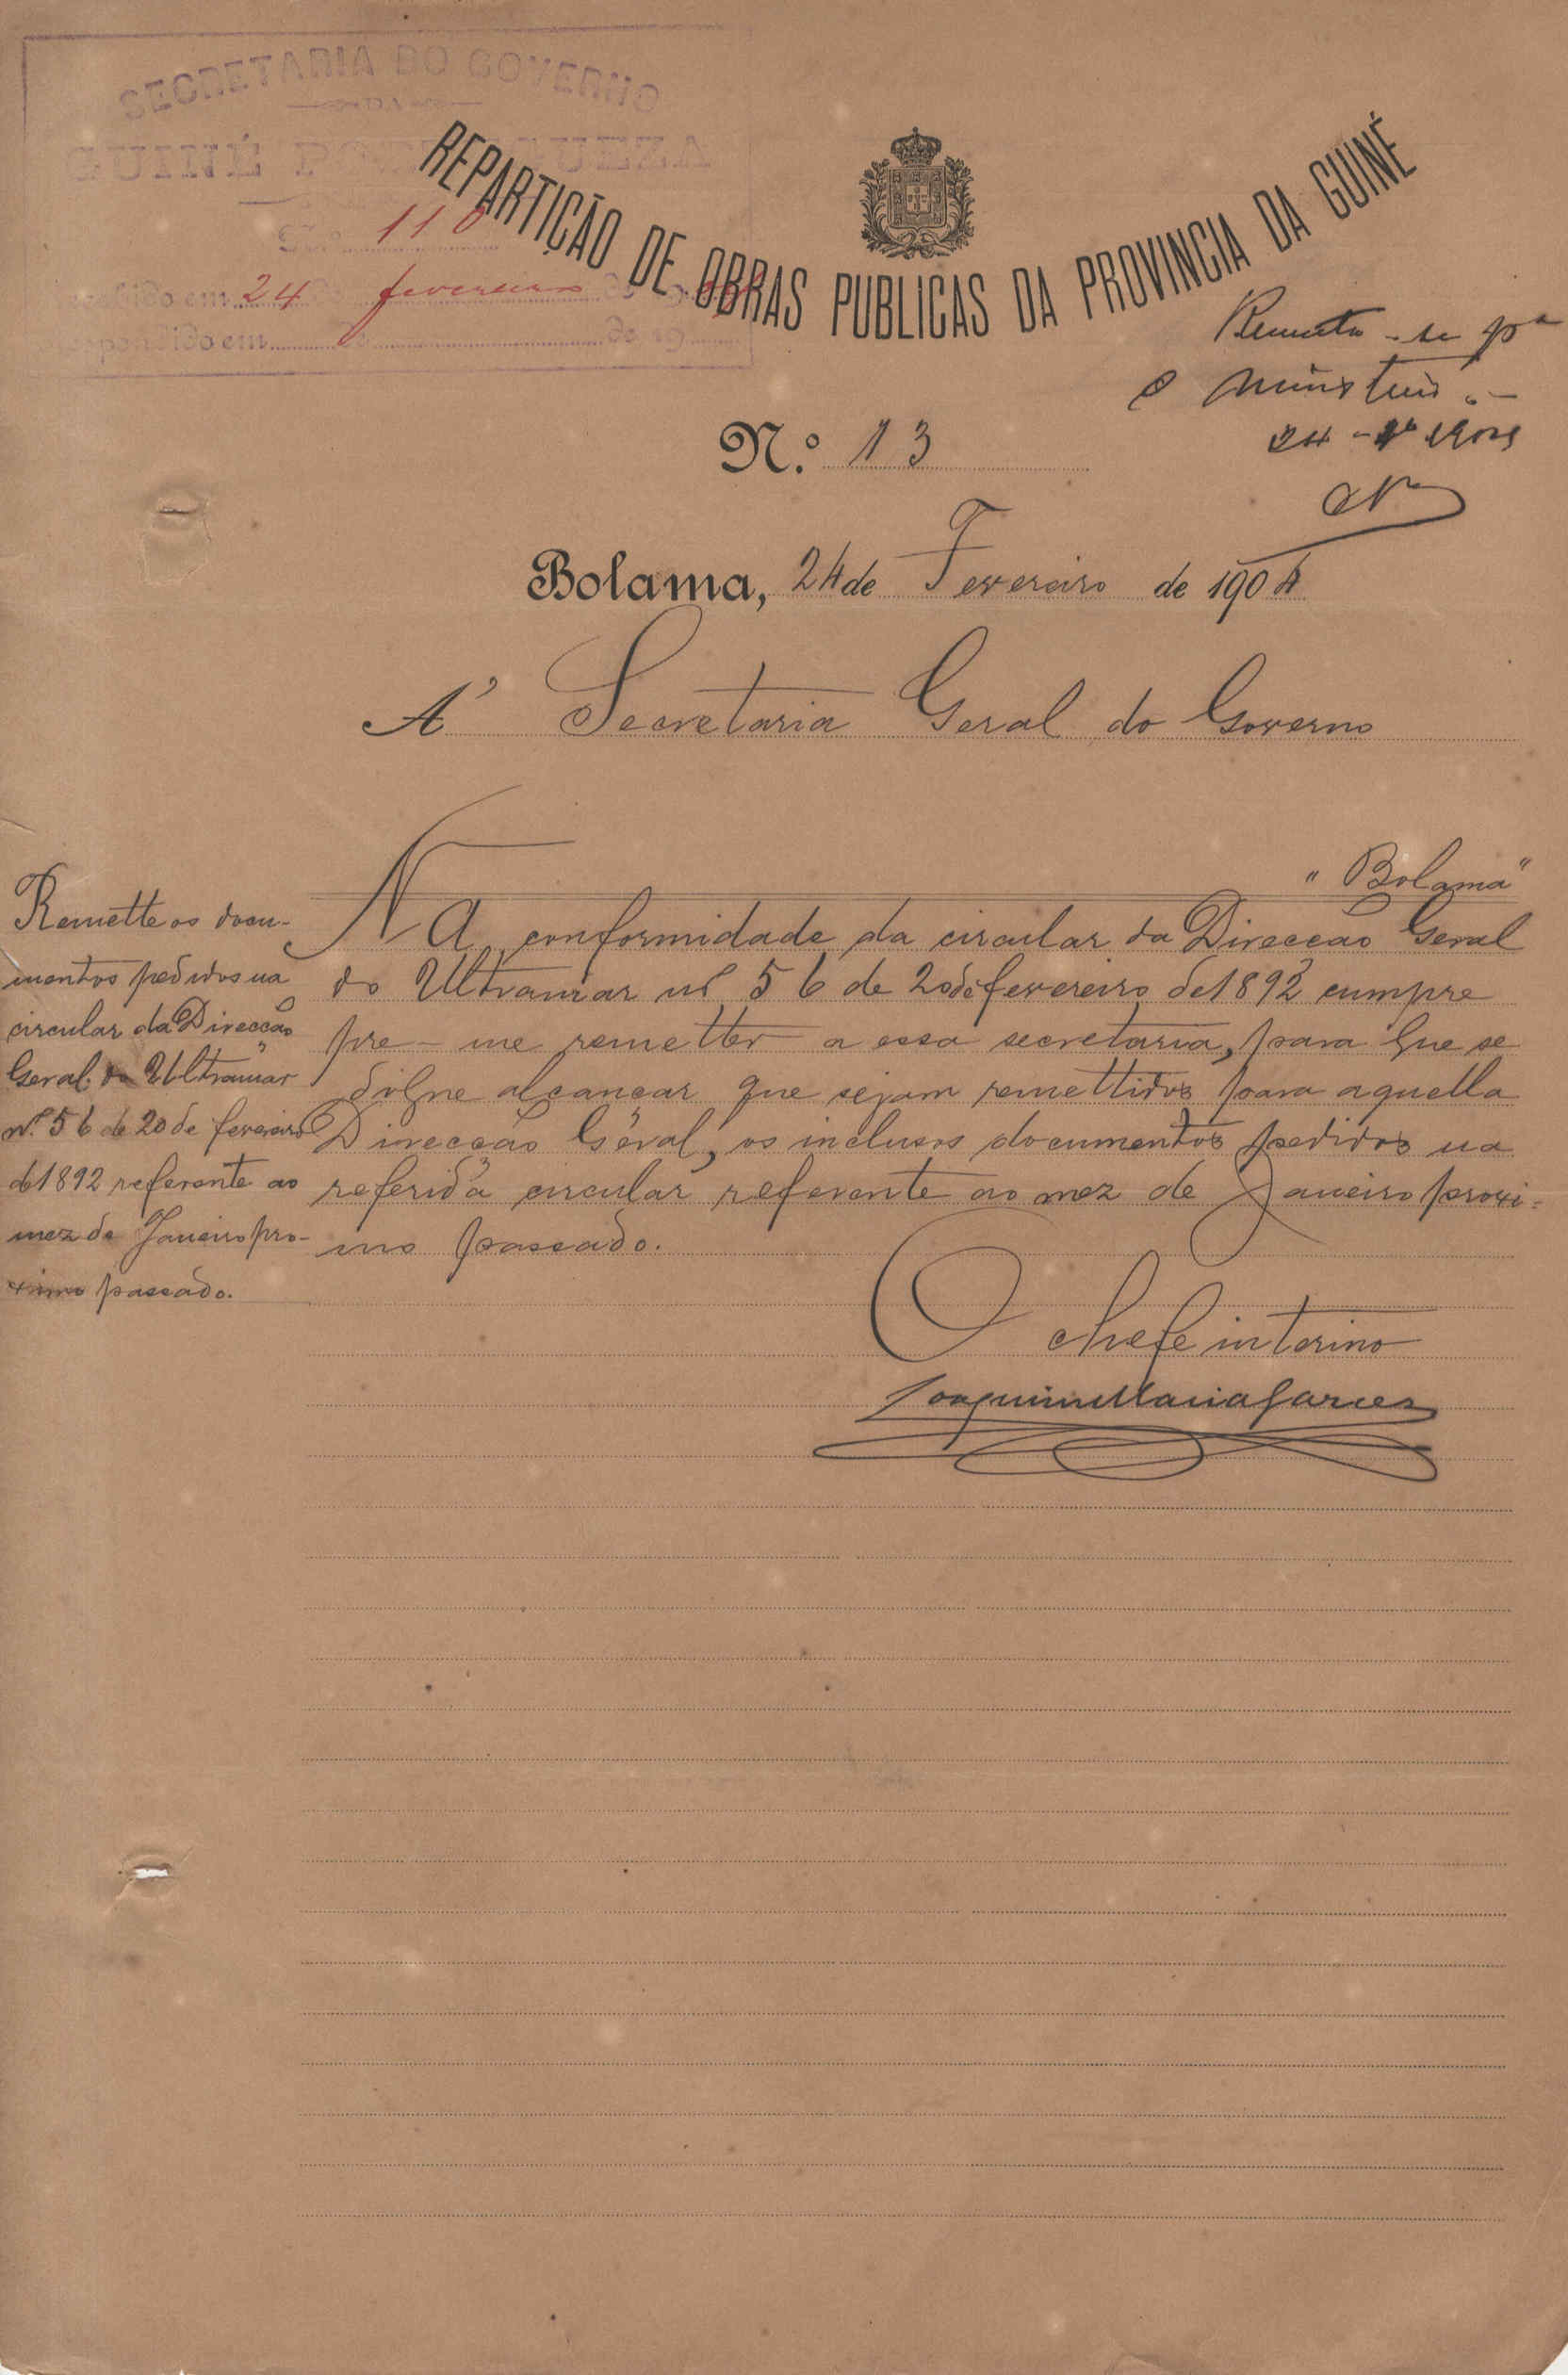 SECRETARIA DO GOVERNO
DA
GUINÉ PORTUGUEZA
N.º 110
em 24 de fevereiro de
em de 19
REPARTIÇÃO DE OBRAS PUBLICAS DA PROVINCIA DA GUINÉ
Remetta-se pª
o Ministerio.-
N.º 13
Bolama, 24 de Fevereiro de 1904
A' Secretaria Geral do Governo
"Bolama"
NA conformidade da circular da Direcção Geral
do Ultramar nº 56 de 20 de fevereiro de 1892 cumpre
pre-me remetter a essa secretaria, para que se
digne alcançar que sejam remettidos para aquella
Direcção Geral, os inclusos documentos pedidos na
referida circular referente ao mez de Janeiro proxi=
mo passado.
Remette os docu-
mentos pedidos na
circular da Direcção
Geral do Ultramar
nº 56 de 20 de fevereiro
de 1892 referente ao
mez de Janeiro pro-
ximo passado.
O chefe interino
Joaquim Maria Garcez